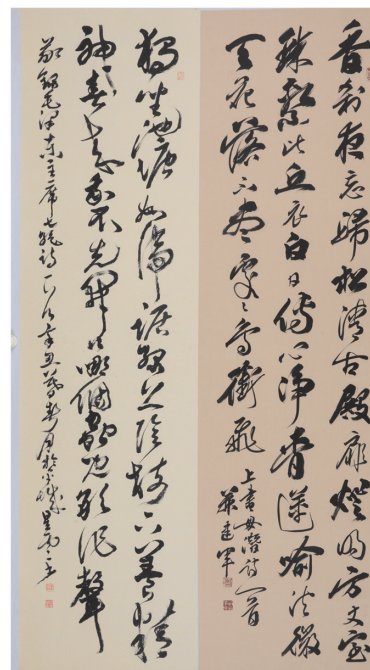 香剎夜忘歸松清古殿扉燈明方丈室
珠繫比丘衣白日傳心淨青蓮喻法微
天花落不盡處々鳥銜飛
上書毋潛詩一首
建軍
獨坐池塘如虎踞綠蔭樹下養精
神春來我不先開口哪個蟲兒敢作聲
敬錄毛澤東主席七絕詩一首辛丑暮春月於